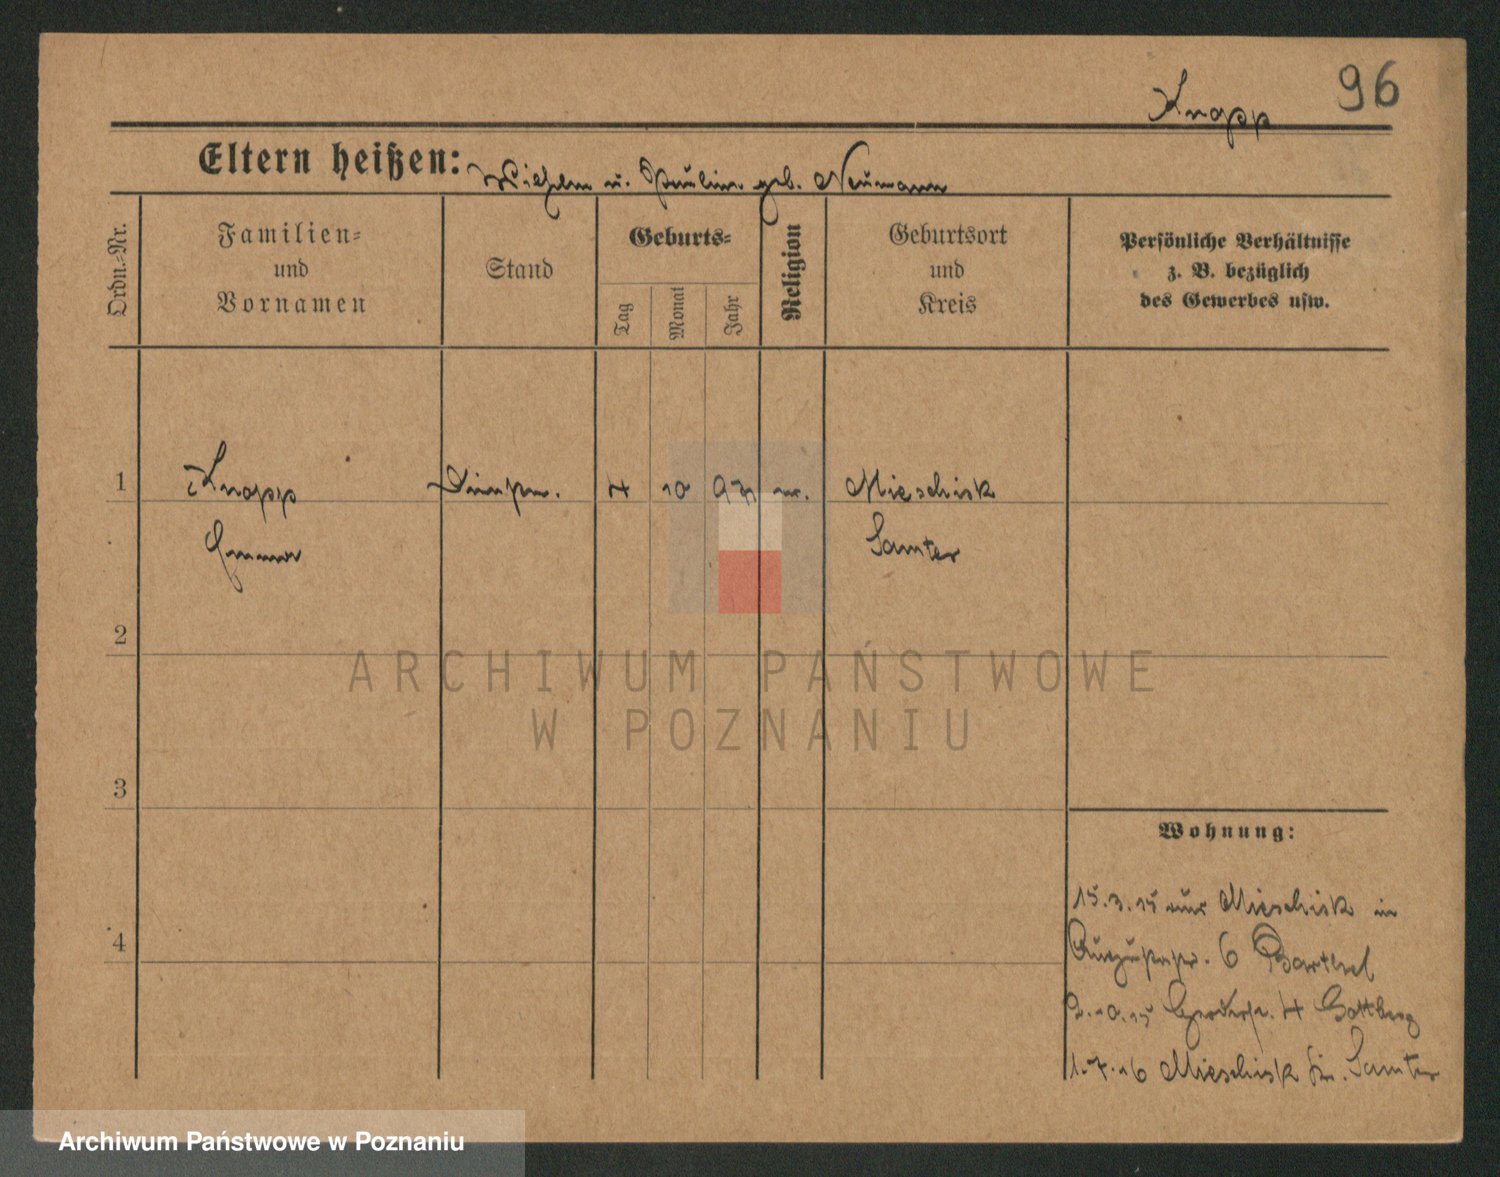 96
Knopp
Eltern heißen: Wilhelm u. Pauline geb. Neumann
Ordn.-Nr.
Familien-
und
Vornamen
Stand
Geburts-
Tag
Monat
Jahr
Religion
Geburtsort
und
Kreis
Persönliche Verhältnisse
z. B. bezüglich
des Gewerbes usw.
1 Knopp 4 10 97 Mieschisk
Emma Samter
2
3
4
Wohnung:
15.3.15 aus Mieschisk in
6 Barthel
2.10.15 4 Gottberg
1.7.16 Mieschisk Kr. Samter
ARCHIWUM PAŃSTWOWE
W POZNANIU
Archiwum Państwowe w Poznaniu